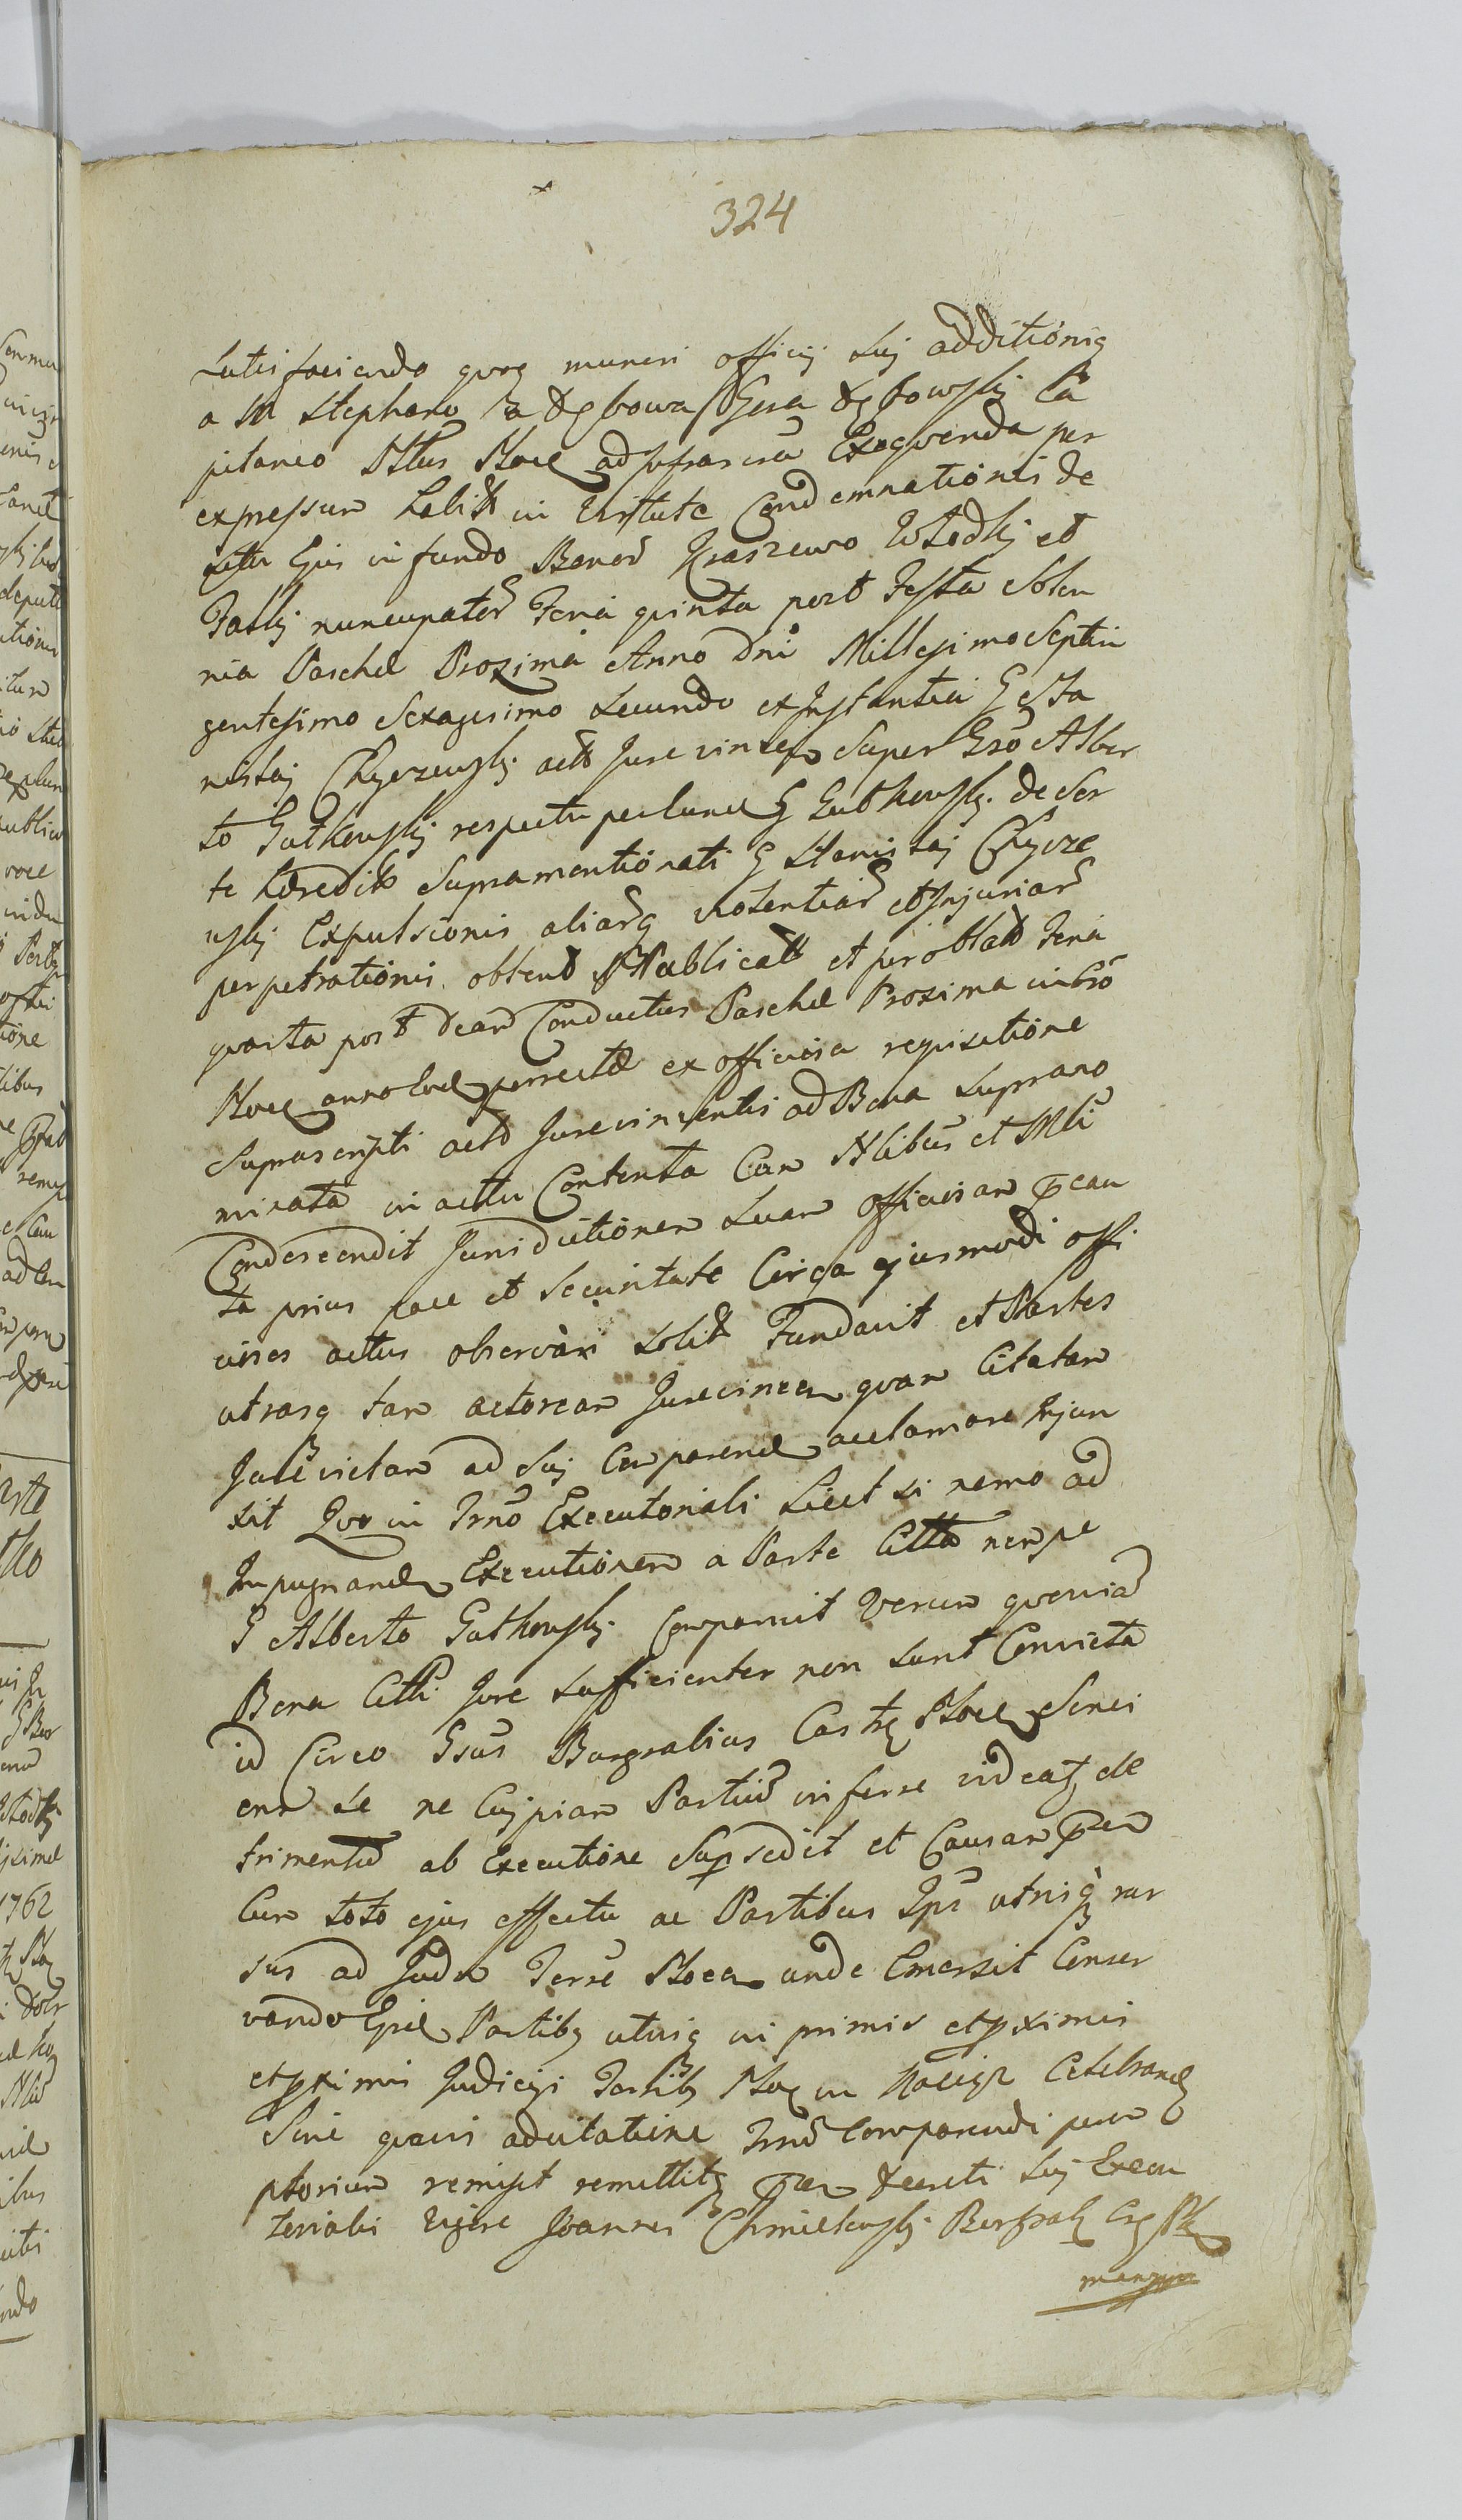 324
satisfaciendo quoq muneri officij sui additionis
a M Stephano a Dębowa Góra Dębowski Ca
pitaneo Plocen ad infrascra Exequenda per
expressum habit in virtute Condemnationis de
situ Ejus in fundo Bonor Kraszewo Włodki et
Falki nuncupator Feria quinta post Festa Solen
nia Paschae Proxima Anno Dni Millesimo Septin
gentesimo Sexagesimo secundo ex Instantia G Sta
nislaj Chyczewski act Jure vincen Super Gso Alber
to Gutkowski respectu per eund G Gutkowski de Sor
te haeredit Supramentionati G Stanislaj Chycze
wski Expulsionis aliarq violentiar et Injuriar
perpetrationis obtent Publicat et per oblat Feria
quarta post Dcam Conductus Paschae Proxima in Cro
Ploce anno eod porrectae ex officiosa requisitione
Suprascripti acto Jurevincentis ad Bona suprano
minata in actu Contenta Cum Nlibus et Mli
Condescendit Jurisdictionem suam officiosam pcau
ta prius pace et securitate Circa ejusmodi offi
ciosos actus observari solit Fundavit et Partes
utrasq tam actoream Jurevincen quam Citatam
Jurevictam ad sui Comparend acclamare Injun
xit Quo in Trno Executoriali licet si nemo ad
Impugnand Executionem a Parte Citta nempe
G Alberto Gutkowski Comparuit Verum quoniam
Bona Citti Jure sufficienter non sunt Convicta
id Circo Gsus Burgrabius Castr Ploce Senti
ens se ne Cuipiam Partium inferre videat de
trimentum ab Executione Supsedit et Causam pntem
Cum toto ejus effectu ac Partibus Ips utrisq rur
sus ad Judm Terre Plocen unde Emersit Conser
vando Ipsis Partibq utrisq in primis et pximis
et pximis Judicijs Terrlibq Ploc in Raciąż Celebrand
Sine quavis adcitatione Trnu Comparendi perem
ptorium remisit remittitq pntis Decreti sui Execu
torialis vigore Joannes Chmielewski Burgrab Cas Plo
manu ppa